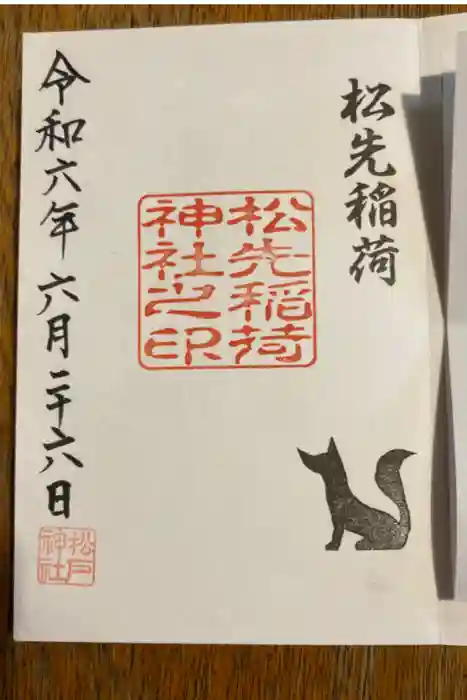 松先稲荷
松先稲荷
神社之印
令和六年 六月二十六日
松戸
神社